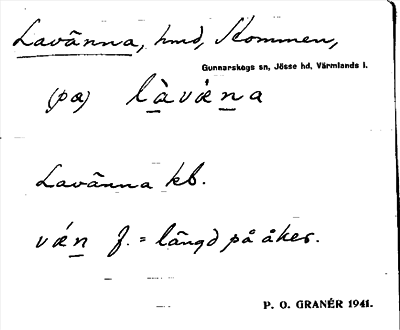 Lavänna, hmd, Kommen,
Gunnarskogs sn, Jösse hd, Värmlands l.
(pæ) làvæ̀na
Lavänna kb.
vǽn f. = längd på åker.
P. O. GRANÉR 1941.